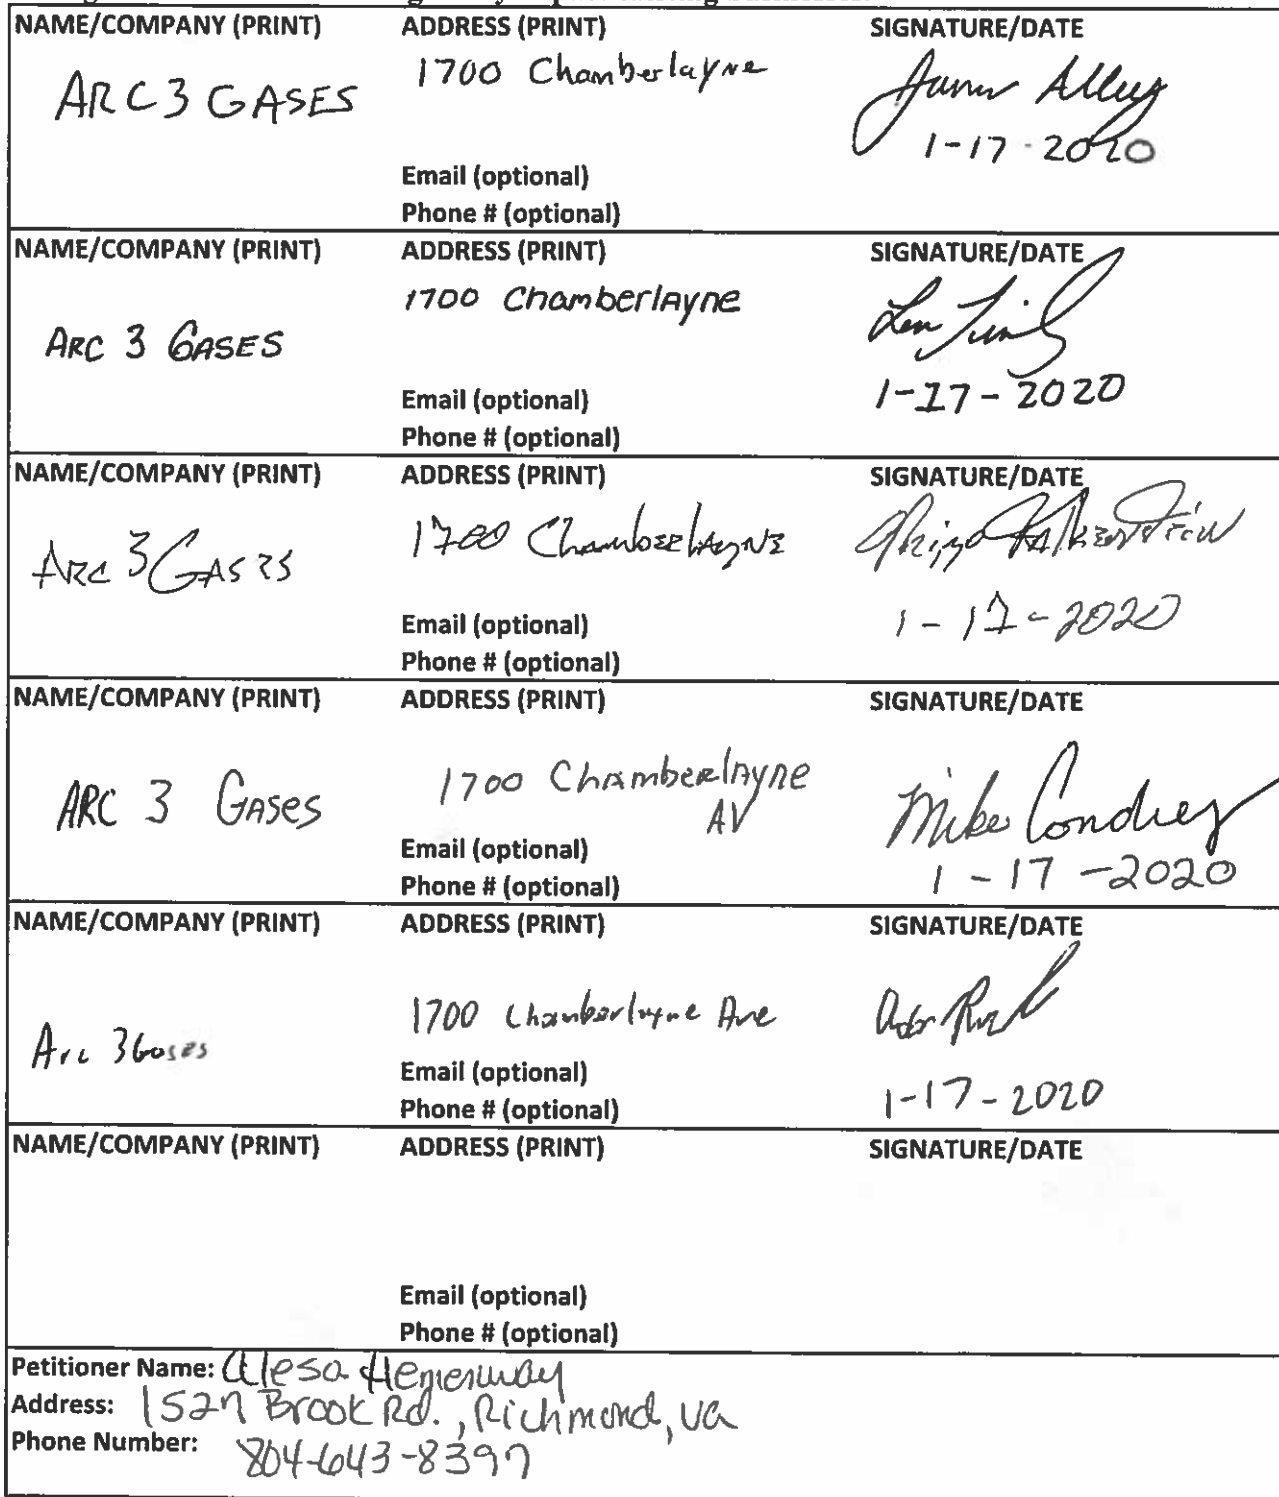 NAME/COMPANY (PRINT) ADDRESS (PRINT) SIGNATURE/DATE
ARC3 GASES 1700 Chamberlayne
1-17-2020
Email (optional)
Phone # (optional)
NAME/COMPANY (PRINT) ADDRESS (PRINT) SIGNATURE/DATE
ARC 3 GASES 1700 Chamberlayne
1-17-2020
Email (optional)
Phone # (optional)
NAME/COMPANY (PRINT) ADDRESS (PRINT) SIGNATURE/DATE
Arc 3 Gases 1700 Chamberlayne
1-17-2020
Email (optional)
Phone # (optional)
NAME/COMPANY (PRINT) ADDRESS (PRINT) SIGNATURE/DATE
ARC 3 Gases 1700 Chamberlayne Mike Condrey
AV
1-17-2020
Email (optional)
Phone # (optional)
NAME/COMPANY (PRINT) ADDRESS (PRINT) SIGNATURE/DATE
Arc 3 Gases 1700 Chamberlayne Ave
1-17-2020
Email (optional)
Phone # (optional)
NAME/COMPANY (PRINT) ADDRESS (PRINT) SIGNATURE/DATE
Email (optional)
Phone # (optional)
Petitioner Name: Alesa Hemenway
Address: 1527 Brook Rd., Richmond, va
Phone Number: 804-643-8397